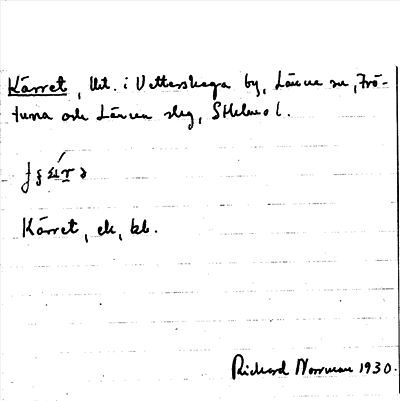 Kärret, lht. i Vettershaga by, Länna sn, Frö-
tuna och Länna slg, Sthlms l.
Kärret, ek, bb.
Richard Norrman 1930.